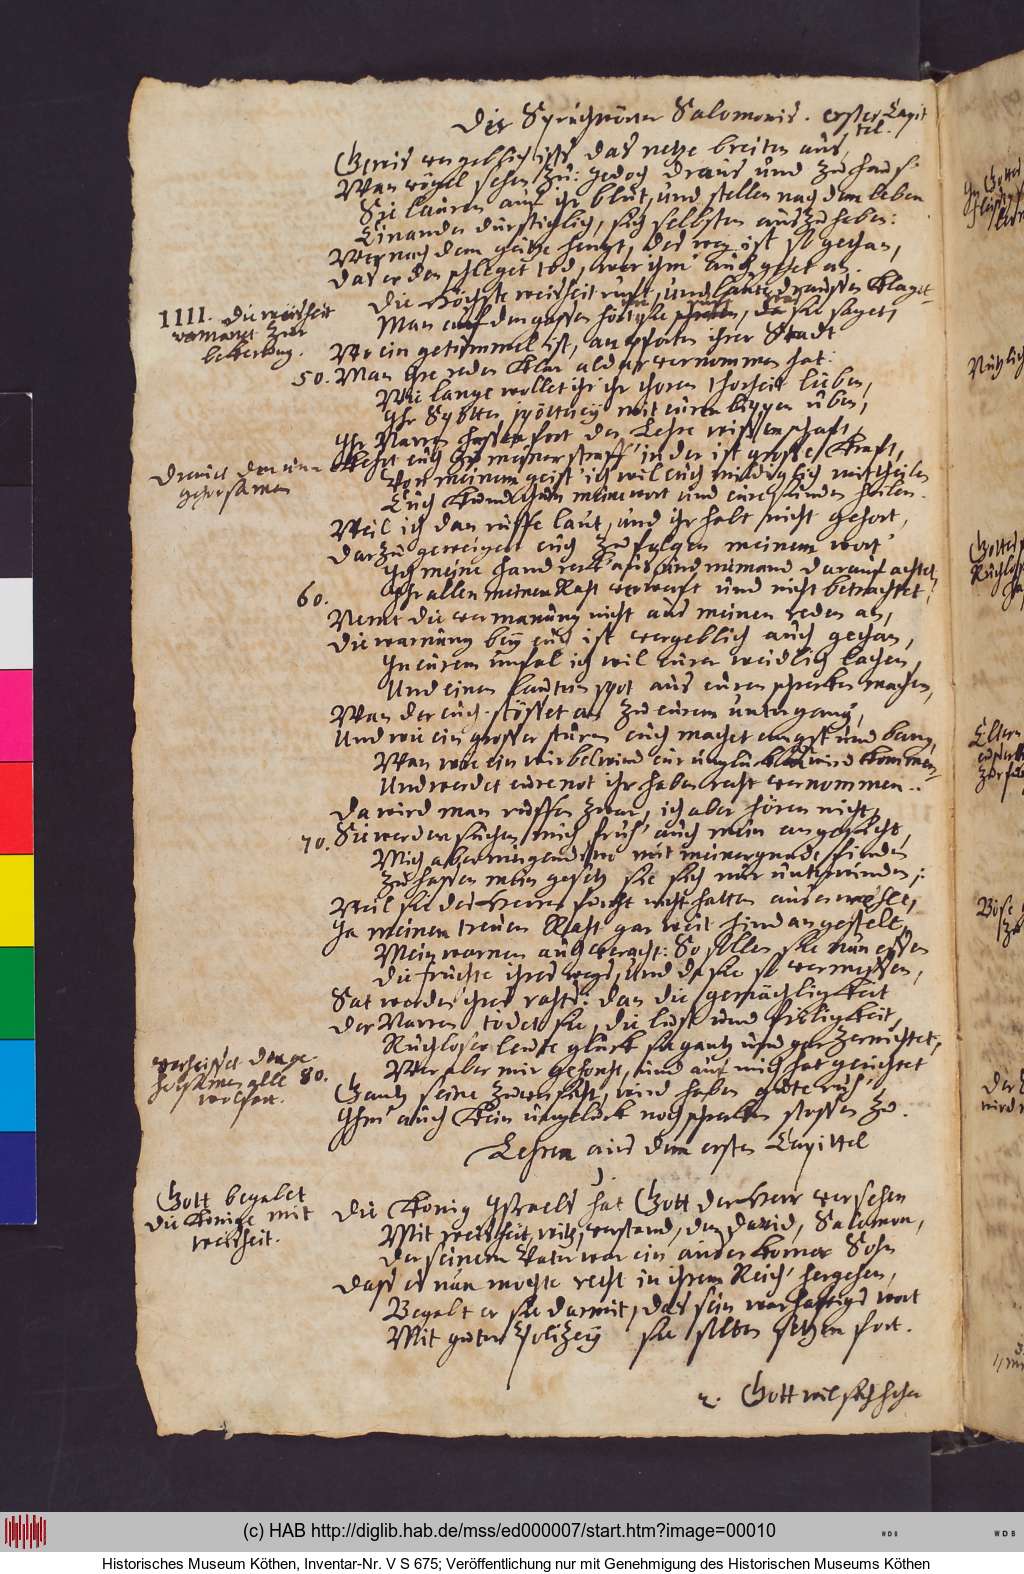 Die Sprüchwörter Salomonis. erster Capit
tel.
Gewis vergeblich ists das netze breiten aus,
Wan vögel sehen zu: Jedoch draus und zu haus
Sie lauren auf ihr blut, und stellen nach dem leben
Einander dürstiglich, sich selbsten auszuheben:
Wer nach dem geitze hengt, des weg ist so gethan,
Das er den pfleget tod, wer ihm auch gehet an.
Die höchste weisheit ruft, und laute draussen klaget
1111. Die weisheit
vermanet zur
bekerung.
Man auf den gassen hört sie, da sie saget,
Wo ein getümmel ist, an pforten ihrer Stadt
50. Man ihre reden klar aldar vernommen hat:
Wie lange wollet ihr ihr thoren thorheit lieben,
Ihr Spötter spötterey mit euren lippen üben,
Ihr Narren hassen fort der Lehre wissenschaft,
Dreuet den un-
gehorsamen
Kehrt euch zu meiner straff in der ist grosse kraft,
Von meinem geist ich wil euch mildiglich mittheilen
Euch kund thun meine wort und eure sünden heilen.
Weil ich dan ruffe laut, und ihr habt nicht gehort,
Darzu geweigert euch zu folgen meinem wort
Ich meine hand reck aus und niemand darauf achtet,
60. Ihr allen meinen Raht verwerft und nicht betrachtet,
Nemt die vermanung nicht aus meinen reden an,
Die warnung bey euch ist vergeblich auch gethan,
In eurem unfal ich wil eurer weidlich lachen,
Und einen lautern spot aus euren schrecken machen,
Wan der euch stösset an zu eurem untergang,
Und wie ein grosser sturm euch machet angst und bang,
Wan wie ein wirbelwind eur unglück wird kommen,
Und werdet eure not ihr haben recht vernommen..
Da wird man ruffen zwar, ich aber hören nicht,
70. Sie werden suchen mich früh auch mein angesicht,
Mich aber nirgendswo mit meiner gunde finden
Zu hassen mein gesetz sie sich nur unterwinden,:
Weil sie des Herren forcht nicht hatten auserwehlt,
Ja meinen treuen Raht gar weit hindangestelt,
Mein warnen auch veracht: So sollen sie nun essen
Die früchte ihres wegs, und da sie so vermessen,
Sat werden ihres rahts: dan die gemächligkeit
Der Narren tödet sie, die lust und seeligkeit,
Ruchloser leute glück sie gantz und gar zernichtet,
verheisset den ge-
horsamen alle
wolfart.
80. Wer aber mir gehorcht, und auf mich hat gerichtet
Gantz seine zuversicht, wird haben gute ruh,
Ihm auch kein ungelück noch schrecken stossen zu.
Lehren aus dem ersten Capittel
1.
Gott begabet
die Könige mit
weisheit.
Die König Israels hat Gott der Herr versehen
Mit weisheit, witz, verstand, den David, Salomon,
Der seinem Vater war ein auserkorner Sohn
Dass es nun mochte recht in ihrem Reich hergehen,
Begabt er sie darmit, das sein warhaftigs wort
Mit guter Polizey sie selten setzen fort.
2. Gott wil sich sehen
(c) HAB http://diglib.hab.de/mss/ed000007/start.htm?image=00010
Historisches Museum Köthen, Inventar-Nr. V S 675; Veröffentlichung nur mit Genehmigung des Historischen Museums Köthen